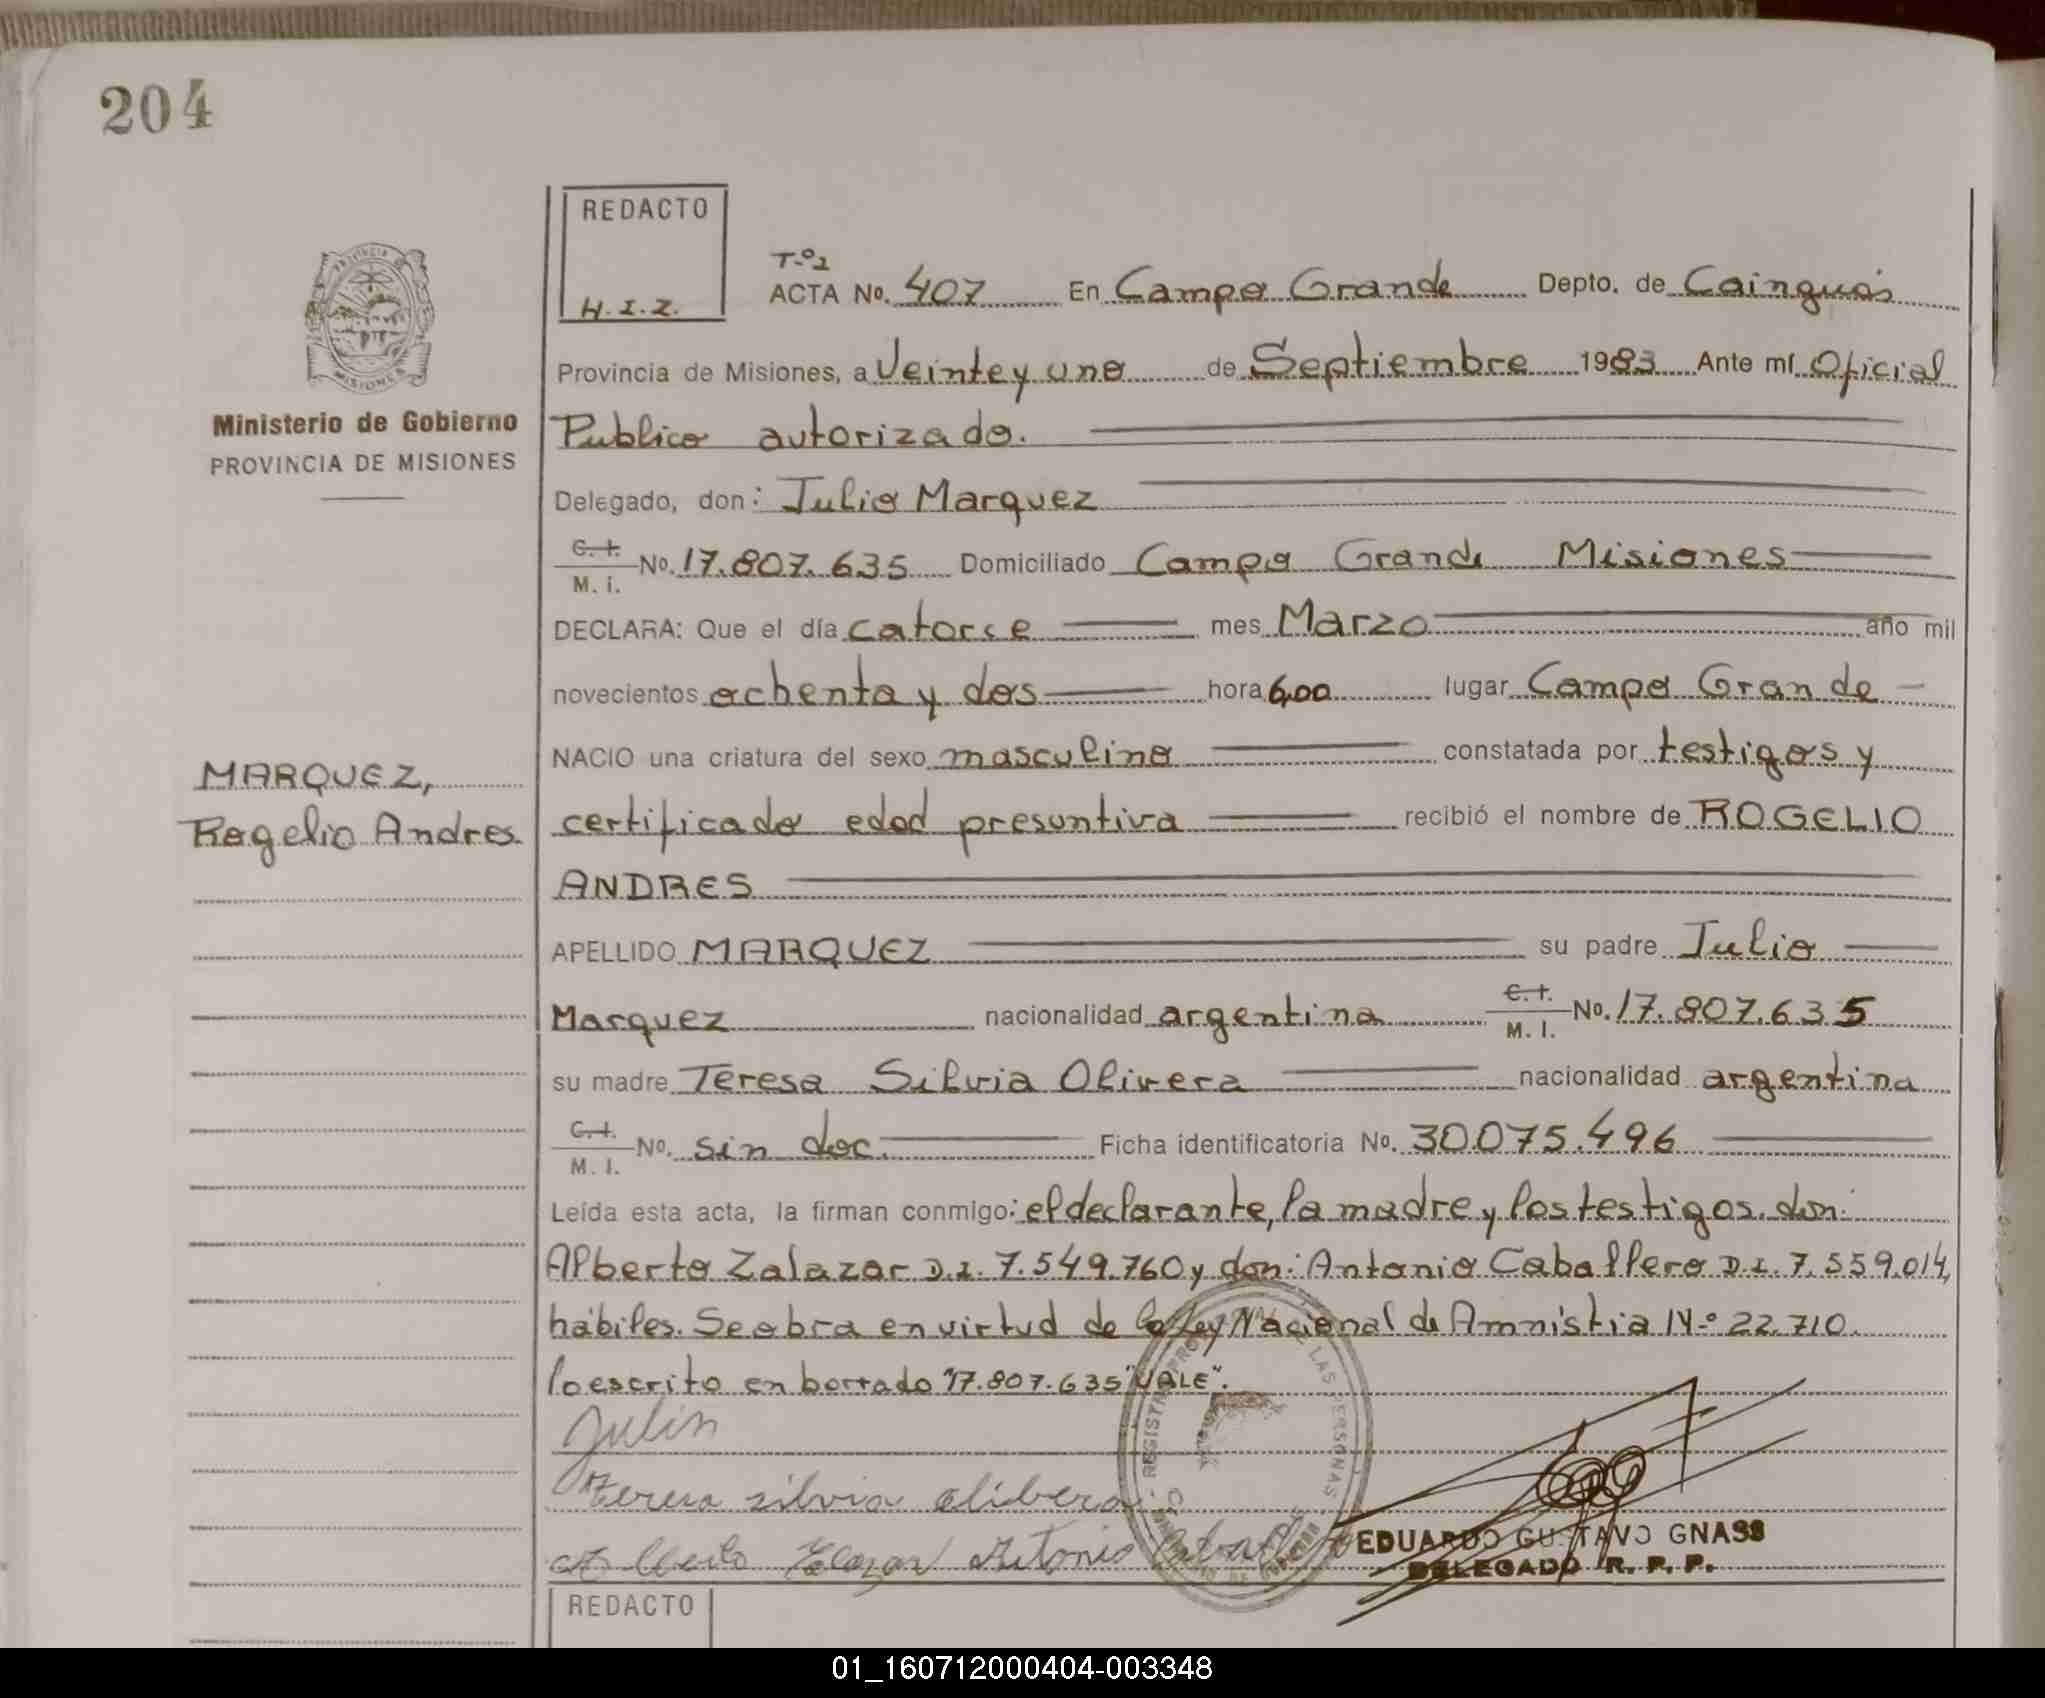 204
REDACTO
H.I.Z.
PROVINCIA
MISIONES
Ministerio de Gobierno
PROVINCIA DE MISIONES
T.º 2
ACTA No. 407 En Campo Grande Depto. de Cainguás
Provincia de Misiones, a Veinte y uno de Septiembre 1983 Ante mí Oficial
Publico autorizado.
Delegado, don: Julio Marquez
C.I. M.I. No. 17.807.635 Domiciliado Campo Grande Misiones
DECLARA: Que el día catorce mes Marzo año mil
novecientos ochenta y dos hora 6,00 lugar Campo Grande
NACIO una criatura del sexo masculino constatada por testigos y
MARQUEZ,
Rogelio Andres.
certificado edad presuntiva recibió el nombre de ROGELIO
ANDRES
APELLIDO MARQUEZ su padre Julio
Marquez nacionalidad argentina C.I. M.I. No. 17.807.635
su madre Teresa Silvia Olivera nacionalidad argentina
C.I. M.I. No. sin doc. Ficha identificatoria No. 30.075.496
Leída esta acta, la firman conmigo: el declarante, la madre y los testigos. don:
Alberto Zalazar D.I. 7.549.760 y don: Antonio Caballero D.I. 7.559.014,
hábiles. Se obra en virtud de la Ley Nacional de Amnistia N.º 22.710.
lo escrito en borrado "17.807.635 "VALE".
Julin
teresa silvia olibera
Antonio
EDUARDO GUSTAVO GNASS
DELEGADO R. P. P.
REDACTO
01_160712000404-003348